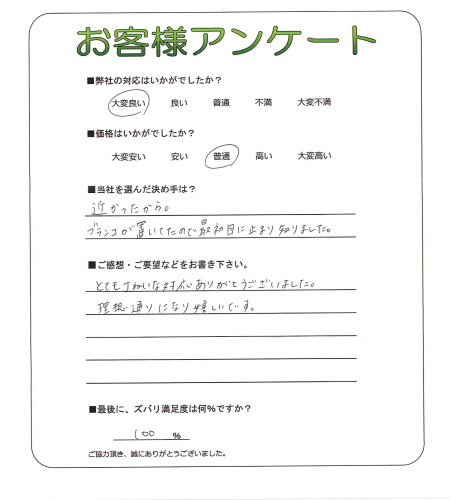 お客様アンケート
■弊社の対応はいかがでしたか?
大変良い 良い 普通 不満 大変不満
■価格はいかがでしたか?
大変安い 安い 普通 高い 大変高い
■当社を選んだ決め手は?
近かったから。
ブランコが置いてたので最初目に止まり知りました。
■ご感想・ご要望などをお書き下さい。
とても丁ねいな対応ありがとうございました。
理想通りになり嬉しいです。
■最後に、ズバリ満足度は何%ですか?
100 %
ご協力頂き、誠にありがとうございました。